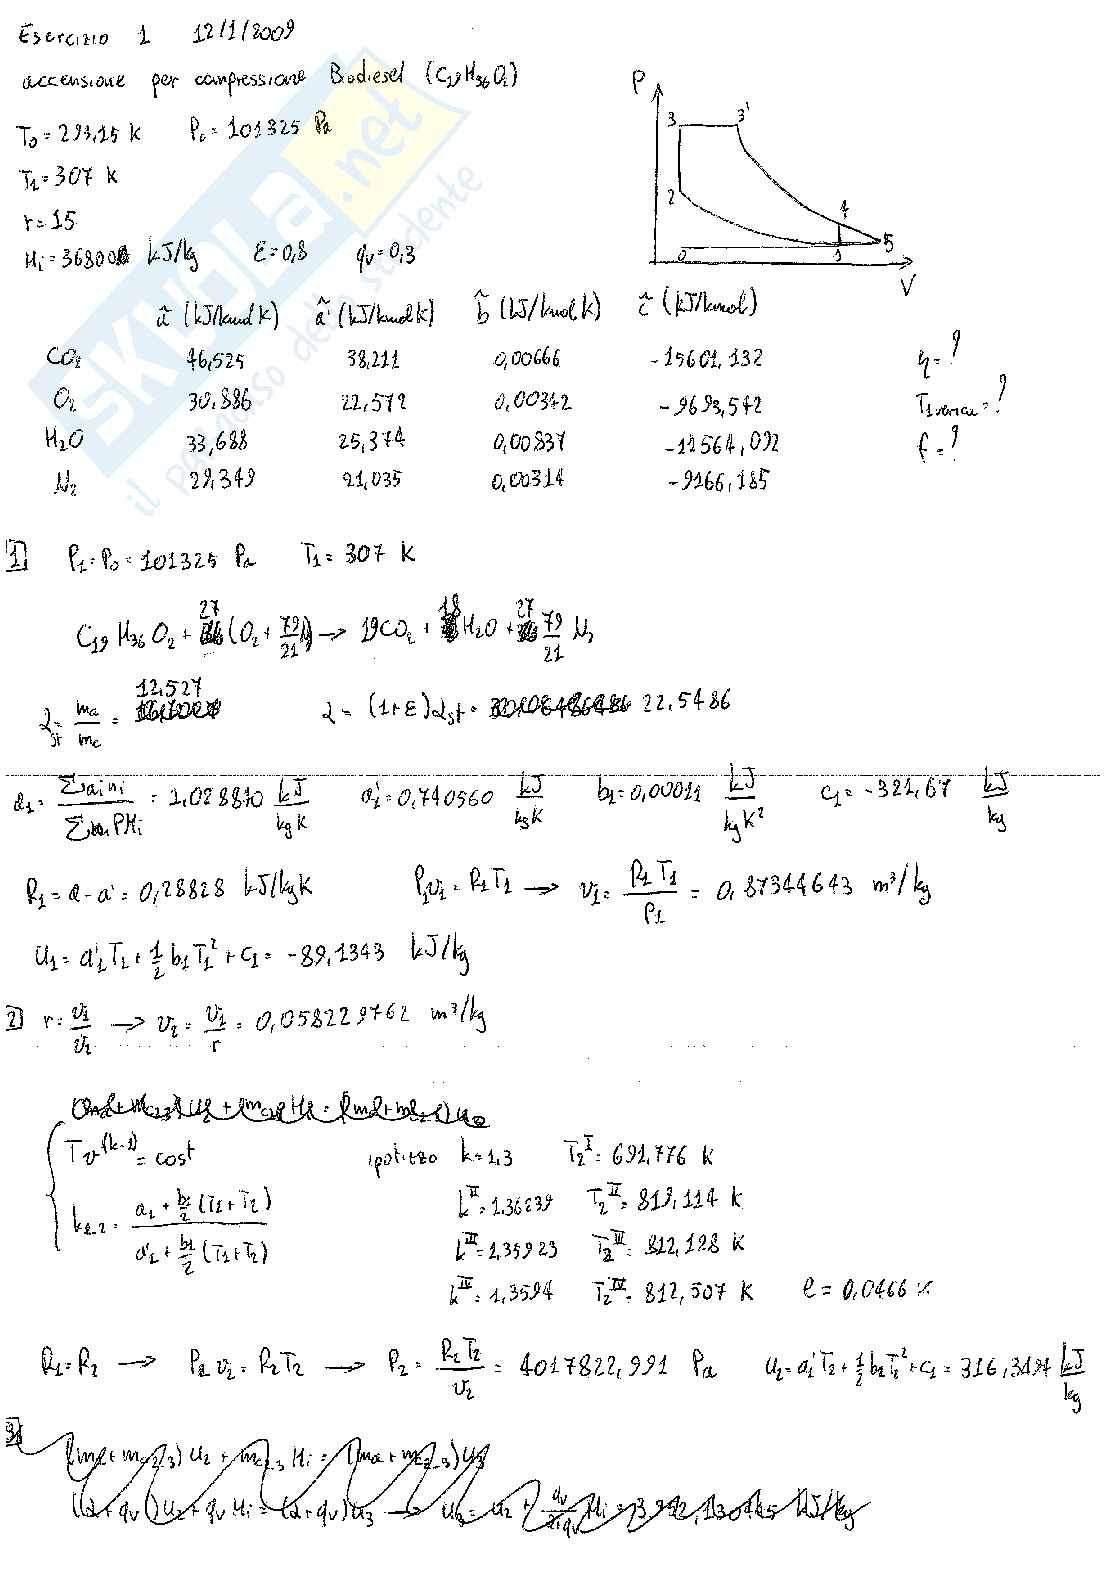 Esercizio 1 12/1/2009
accensione per compressione Biodiesel (C19H36O2)
T0 = 293,15 K P0 = 101325 Pa
T1 = 307 K
r = 15
Hi = 36800 kJ/kg ε = 0,8 qv = 0,3
P
3 3'
2
4
0 1 5
V
ã (kJ/kmol K) ã' (kJ/kmol K) b̃ (kJ/kmol K) c̃ (kJ/kmol)
CO2 46,525 38,211 0,00666 -15601,132 η = ?
O2 30,886 22,572 0,00342 -9693,542 T1 verificare = ?
H2O 33,688 25,374 0,00837 -11564,092 f = ?
N2 29,349 21,035 0,00314 -9166,185
1) P1 = P0 = 101325 Pa T1 = 307 K
C19H36O2 + 27 (O2 + 79/21 N2) → 19CO2 + 18 H2O + 27 79/21 N2
αst = ma/mc = 12,527 α = (1+ε)αst = 22,5486
a1 = Σ ai ni / Σ ni PMi = 1,028810 kJ/kg K a'1 = 0,740560 kJ/kg K b1 = 0,00011 kJ/kg K² c1 = -321,67 kJ/kg
R1 = a - a' = 0,28828 kJ/kg K P1v1 = R1T1 → v1 = R1T1/P1 = 0,87344643 m³/kg
u1 = a'1T1 + 1/2 b1T1² + c1 = -89,1343 kJ/kg
2) r = v1/v2 → v2 = v1/r = 0,058229762 m³/kg
T v^(k-1) = cost ipotizzo k = 1,3 T2^I = 691,776 K
k1-2 = (a1 + b1/2 (T1+T2)) / (a'1 + b1/2 (T1+T2)) k^II = 1,36239 T2^II = 819,114 K
k^III = 1,35923 T2^III = 812,128 K
k^IV = 1,3594 T2^IV = 812,507 K e = 0,0466 %
R1 = R2 → P2 v2 = R2T2 → P2 = R2T2/v2 = 4017822,991 Pa u2 = a'1T2 + 1/2 b2T2² + c1 = 316,3494 kJ/kg
(ma+mc2-3) u2 + mc2-3 Hi = (ma+mc2-3) u3
(α+qv) u2 + qv Hi = (α+qv) u3 → u3 = u2 + qv/(α+qv) Hi